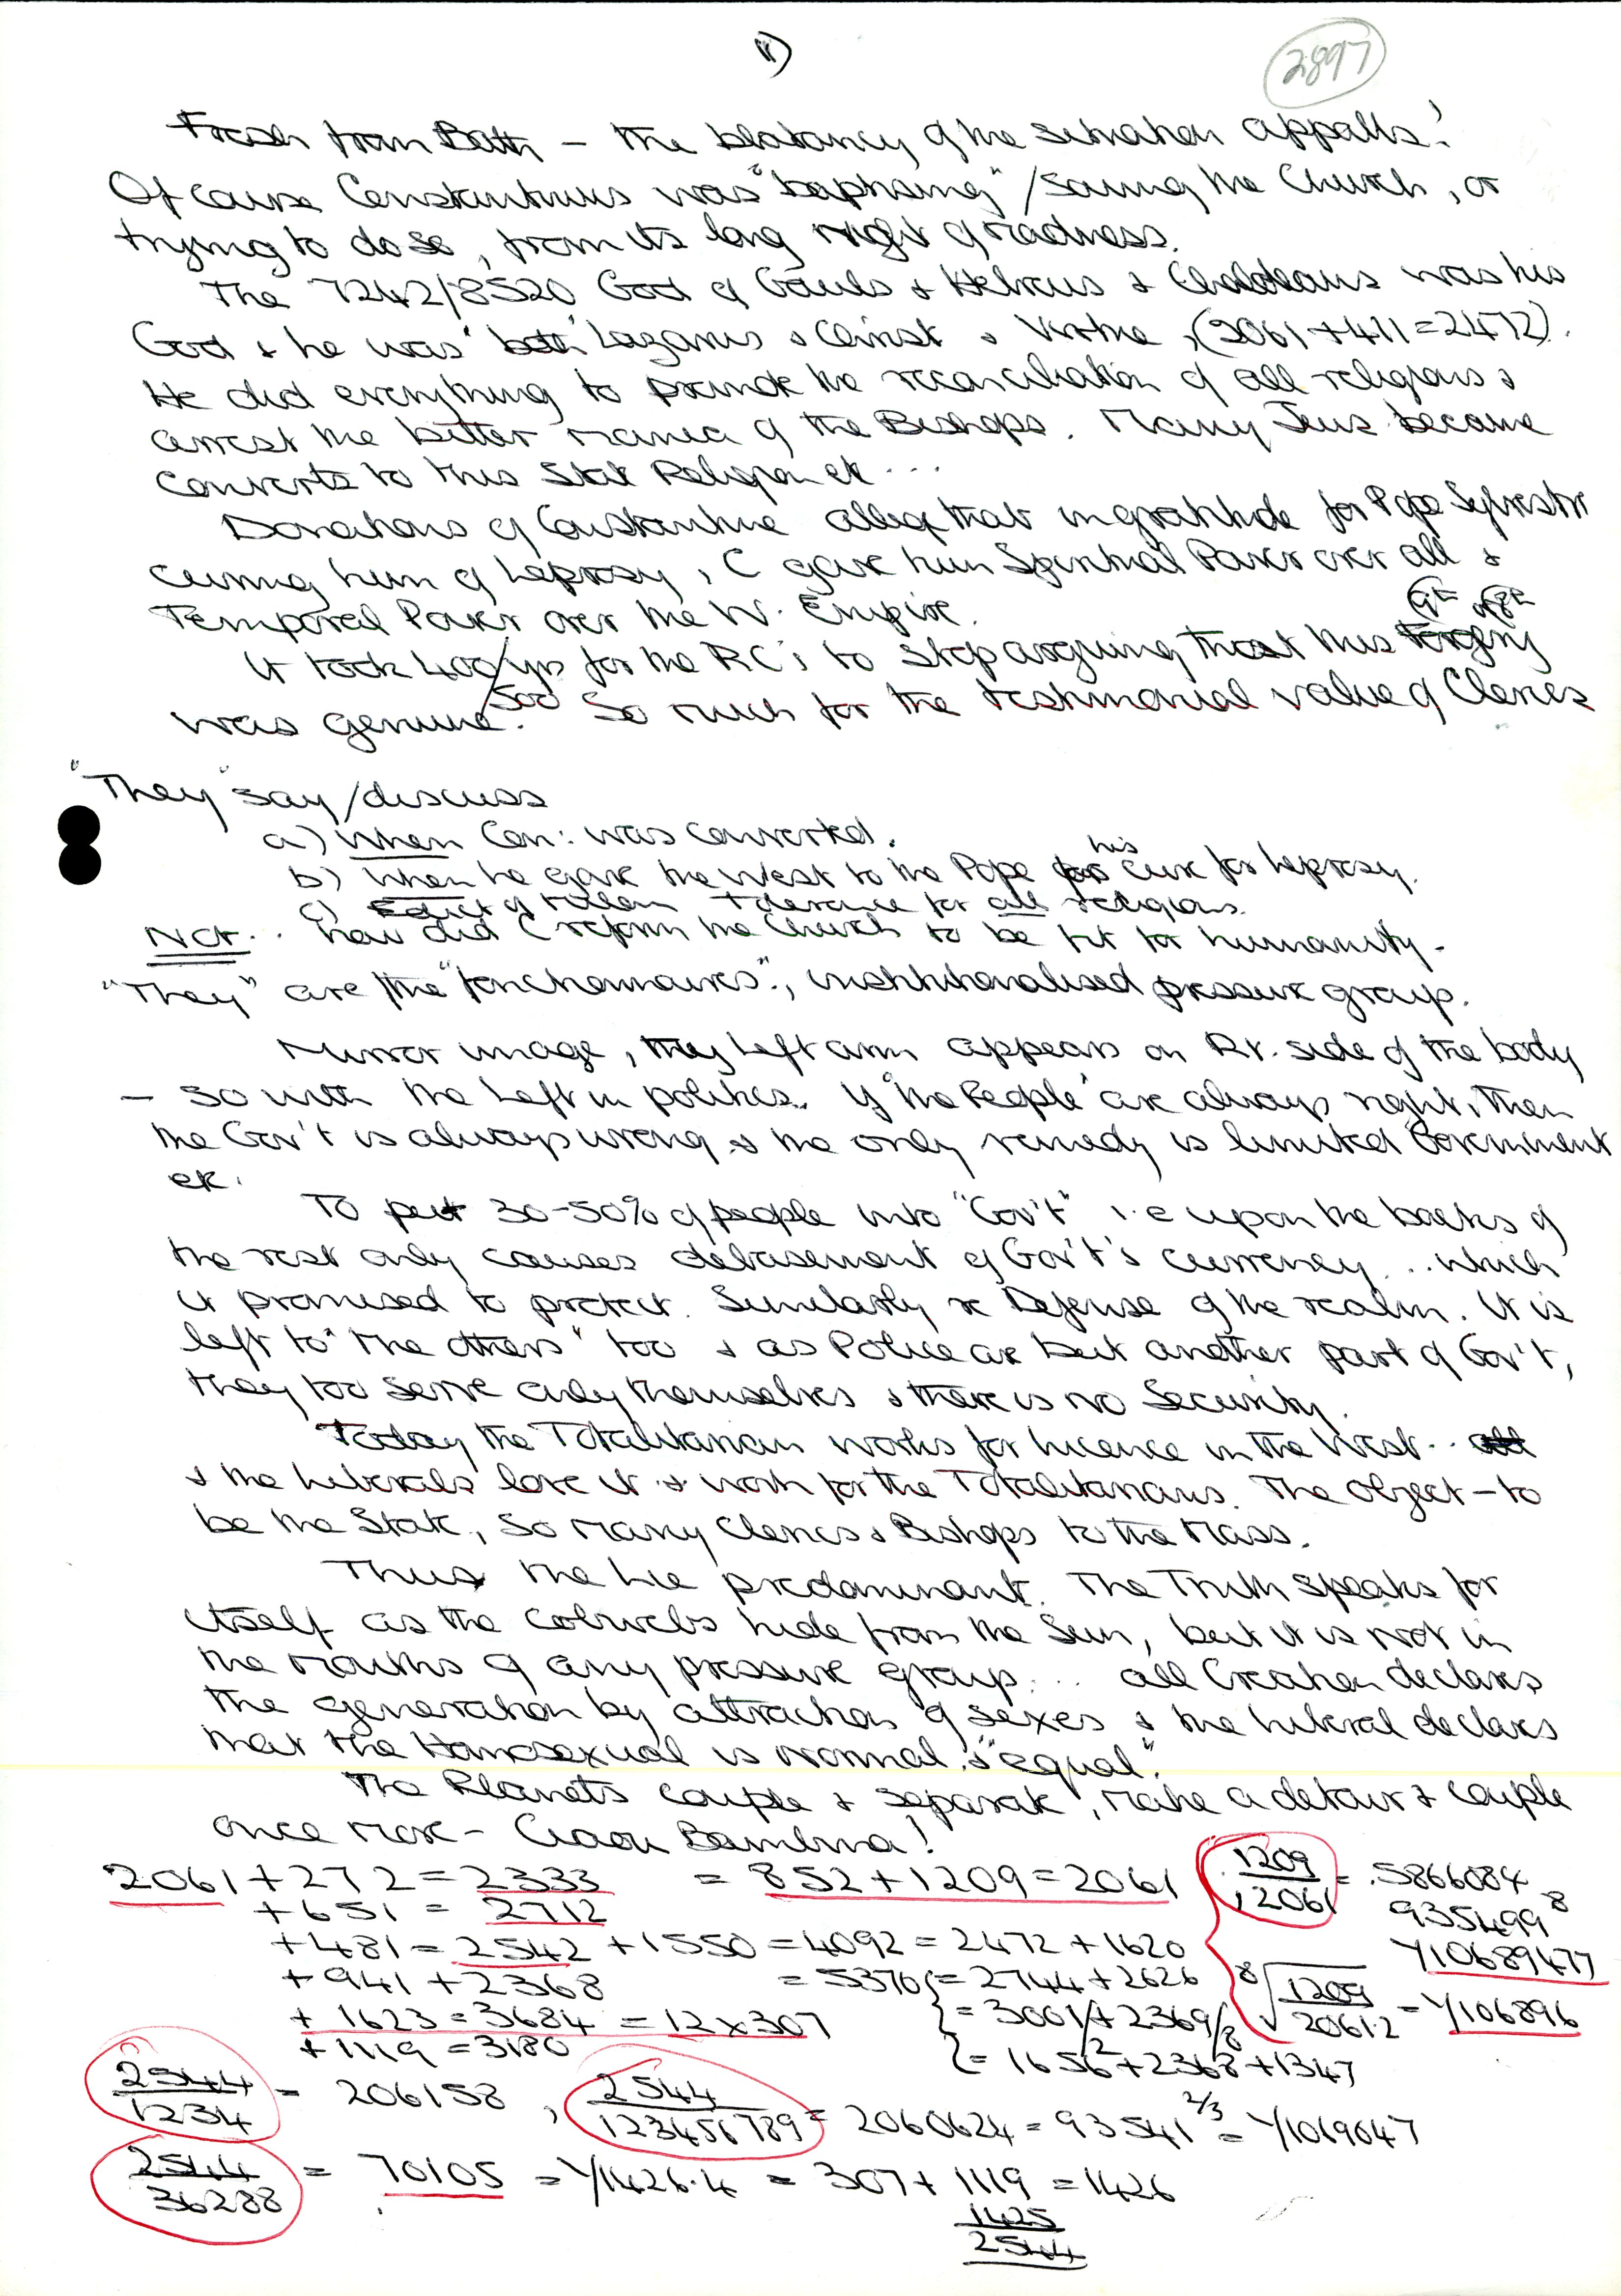 2897
Fresh from Bath – the blatancy of the situation appalls!
Of course Constantinus was "baptising"/saving the Church, or
trying to do so, from its long night of madness.
The 7242/8520 God of Gauls & Hebrews & Chaldeans was his
God & he was "both" Lazarus & Christ & Virtue, (2061+411=2472).
He did everything to provide the reconciliation of all religions &
arrest the bitter mania of the Bishops. Many Jews became
converts to this State Religion etc ...
Donations of Constantine allege that in gratitude for Pope Sylvestre
curing him of Leprosy, C gave him Spiritual Power over all &
Temporal Power over the W. Empire.
It took 400/500 yrs for the RC's to stop arguing that this Forgery
was genuine. So much for the testimonial value of Clerics
"They" say/discuss
a) When Con: was converted.
b) When he gave the West to the Pope for his cure for leprosy.
c) Edict of Milan Tolerance for all religions.
Not .. how did C reform the Church to be fit for humanity.
"They" are the "fonctionnaires", institutionalised pressure group.
Mirror image, they left arm appears on Rt. side of the body
– so with the Left in politics. If "the People" are always right, then
the Gov't is always wrong & the only remedy is limited Government
etc.
To put 30-50% of people into "Gov't" i.e upon the backs of
the rest only causes debasement of Gov't's currency .. which
it promised to protect. Similarly re Defense of the realm. It is
left to "the others" too & as Police are but another part of Gov't,
they too serve only themselves & there is no Security.
Today the Totalitarian works for licence in the West ..
& the Liberals love it & work for the Totalitarians. The object – to
be the State, so many Clerics & Bishops to the Mass.
Thus the Lie predominant. The Truth speaks for
itself as the cobwebs hide from the Sun, but it is not in
the mouths of any pressure group ... all Creation declares
the generation by attraction of sexes & the liberal declares
that the Homosexual is normal, & "equal".
The Planets couple & separate, make a detour & couple
once more – Ciaou Bambina!
2061+272=2333 = 852+1209=2061 1209/12061 = .5866084
+651 = 2712 935499⁸
+481=2542 +1550=4092=2472+1620 1/10689477
+941+2368 = 5370 = 2744+2626 ⁸√1209/2061.2 = 1/106896
+1623=3684=12x307 = 3001/2+2369/8
+1119=3180 = 1656+2368+1347
2544/1234 = 206158, 2544/123456789 = 2060624 = 93541 2/3 = 1/1069047
2544/36288 = 70105 = 1/1426.4 = 307+1119=1426
1425
2544